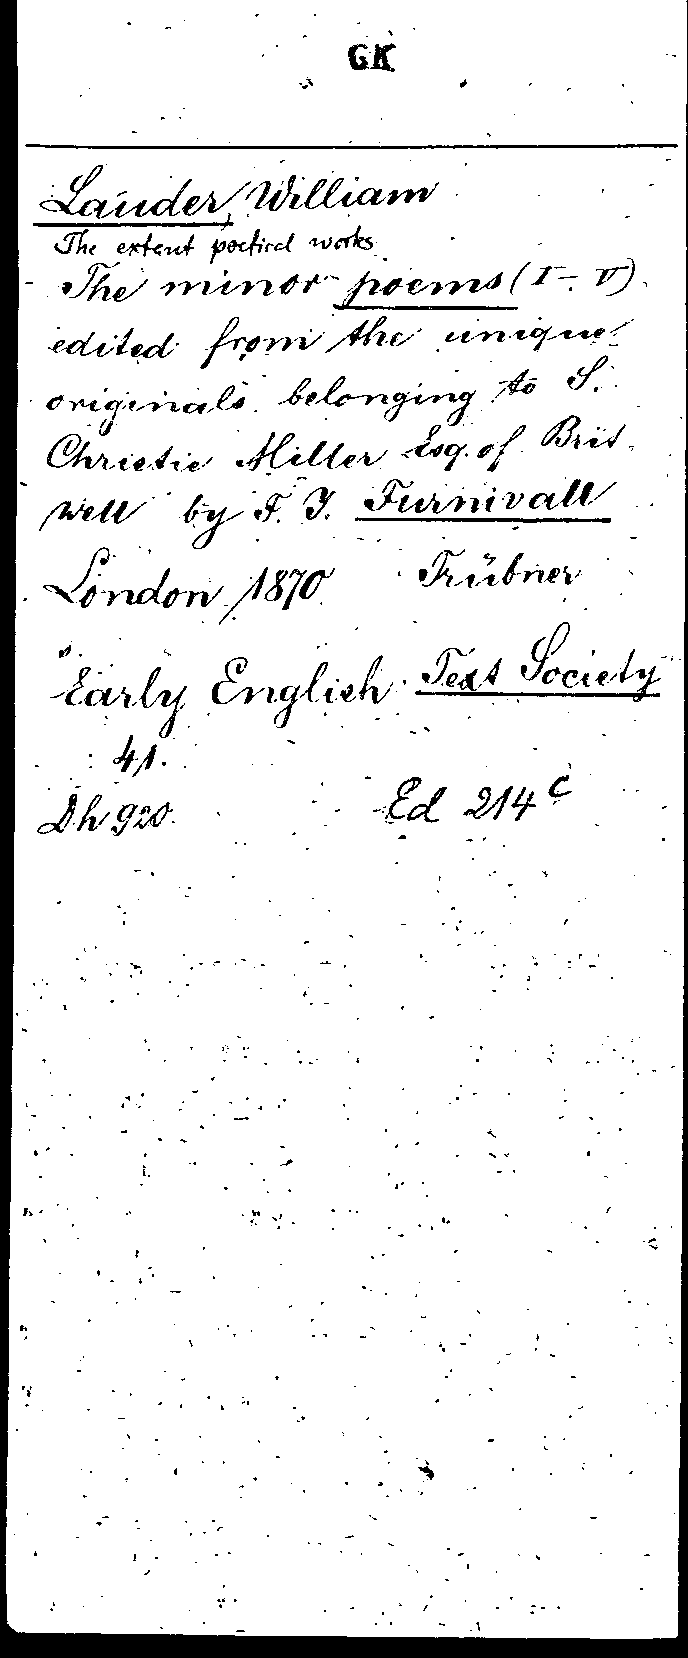 GK
Lauder, William
The extent poetical works
The minor poems (I-V)
edited from the unique
originals belonging to S.
Christie Miller Esq. of Brit
well by F. J. Furnivall
London, 1870 Trübner
"Early English Text Society
41.
Dh 920. Ed 214 c